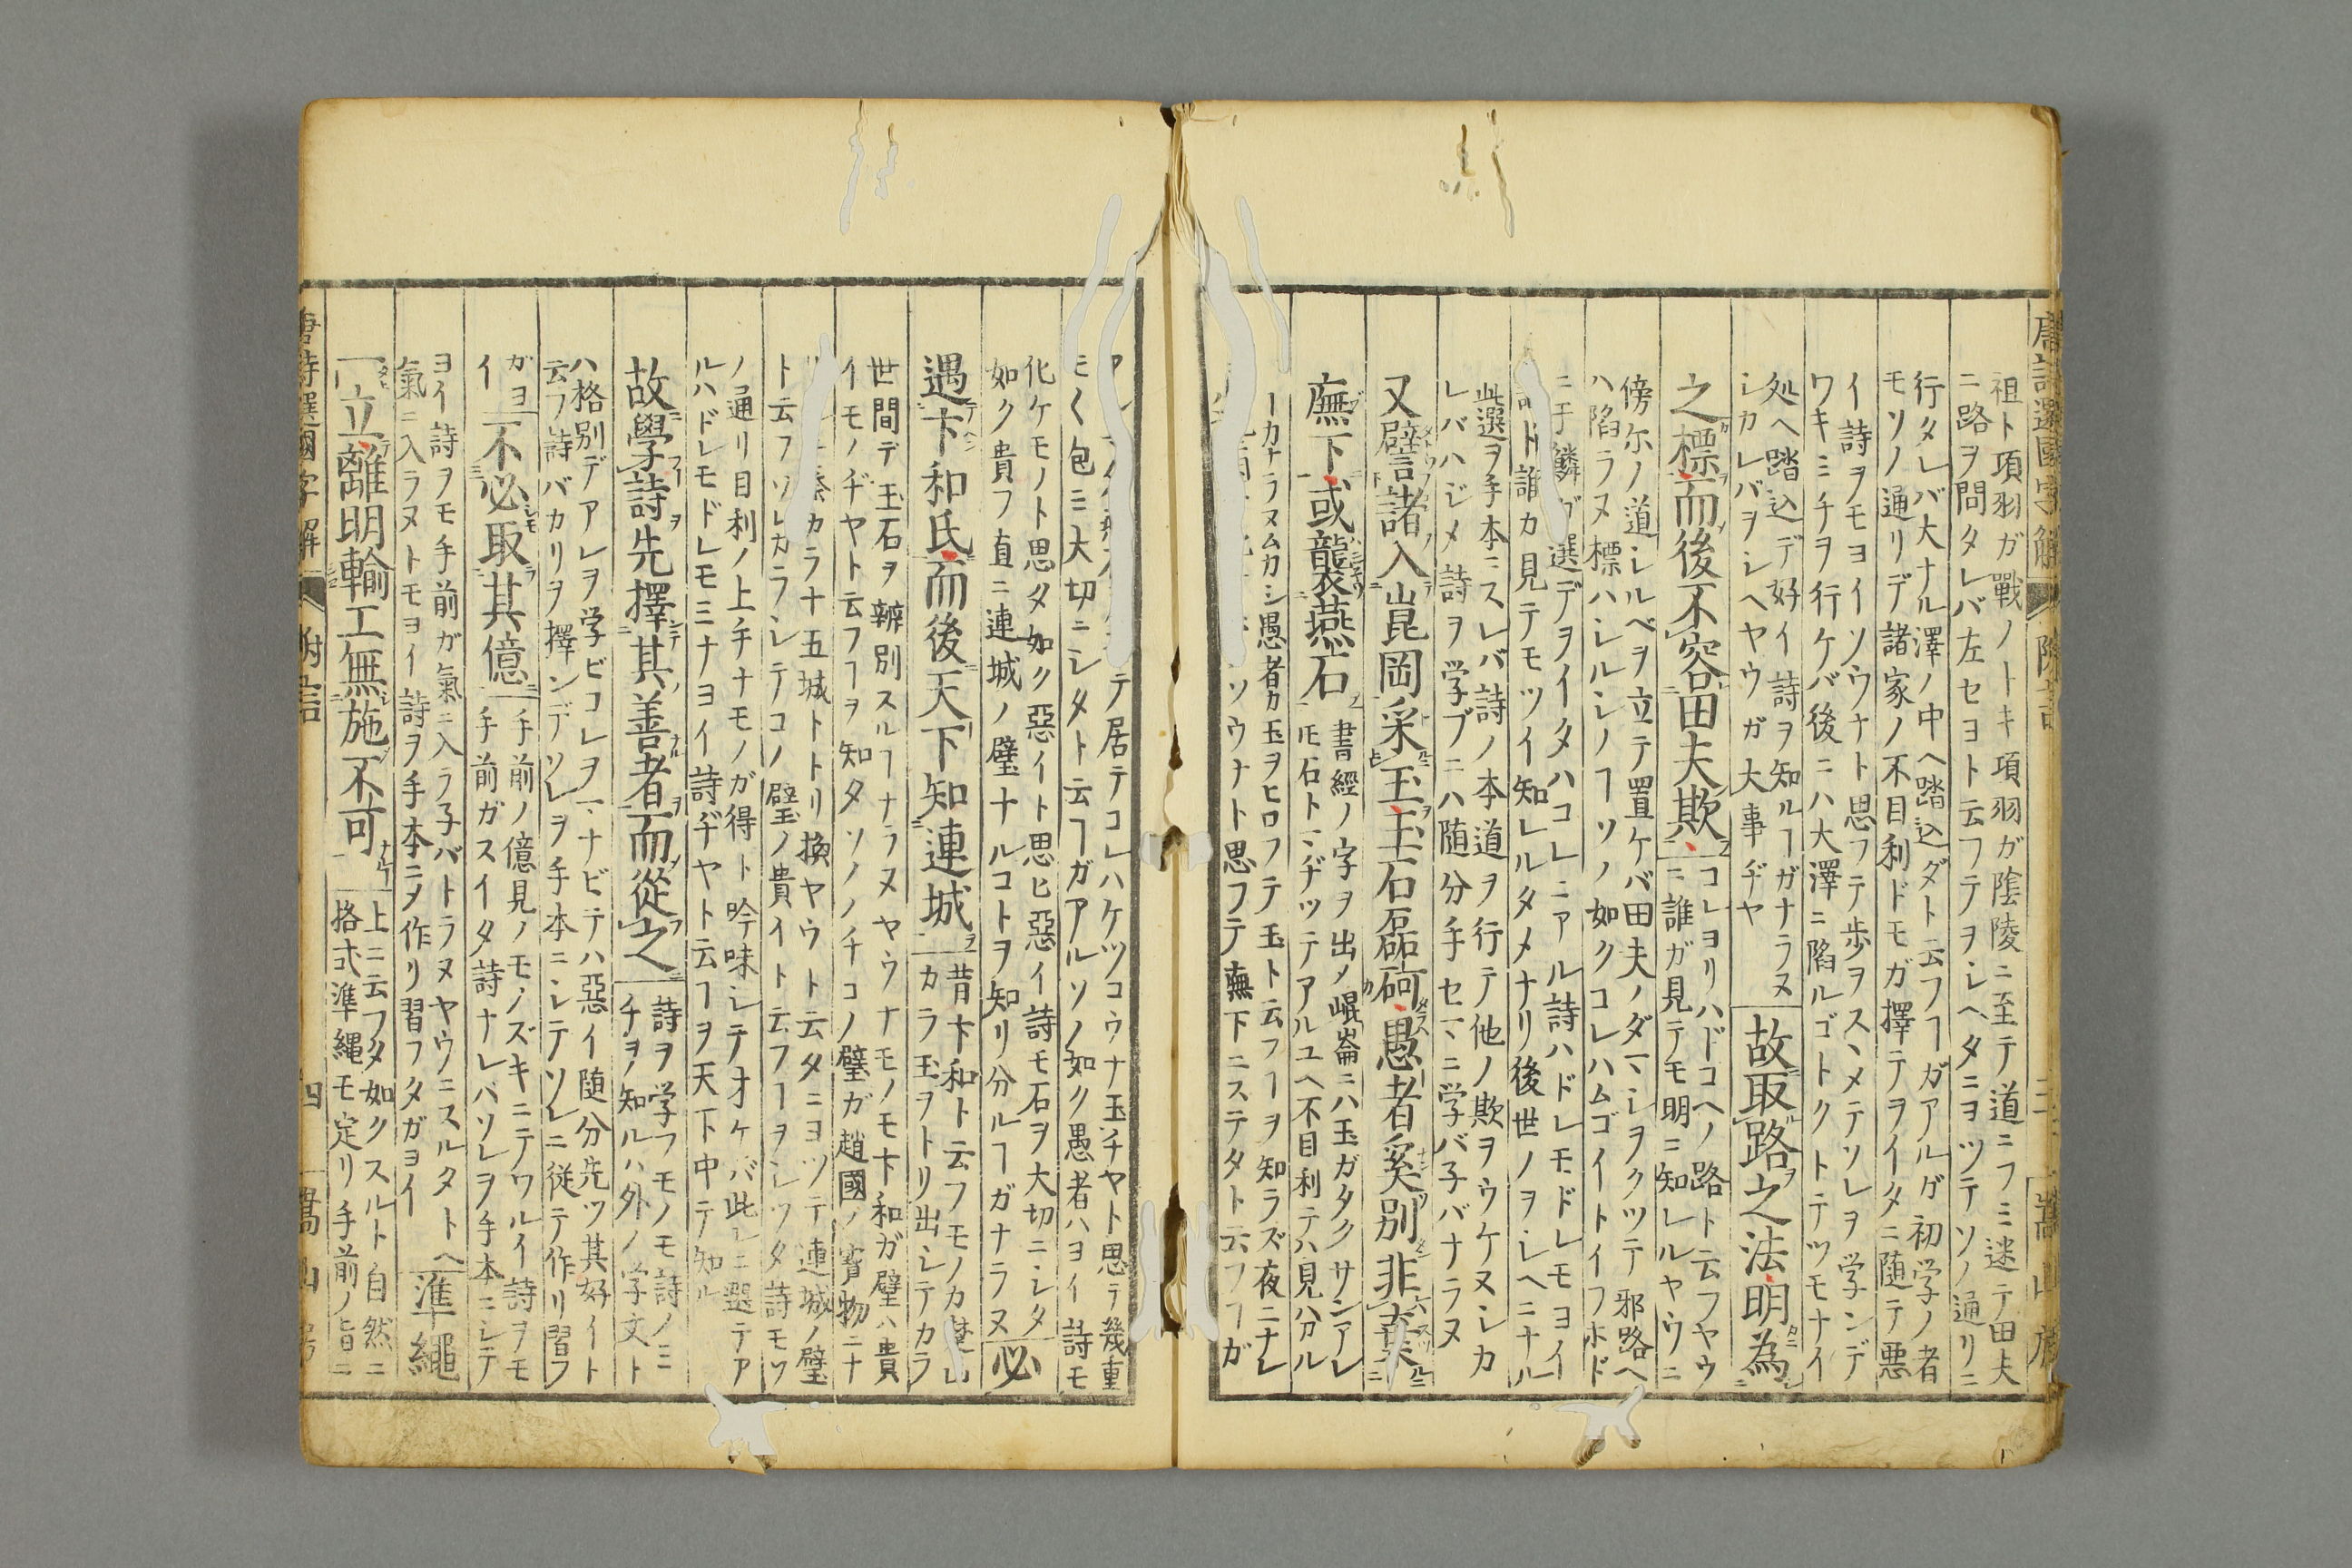 唐詩選國字解 附言 三 嵩山房
祖ト項羽ガ戰ノトキ項羽ガ陰陵ニ至テ道ニフミ迷テ田夫
ニ路ヲ問タレバ左セヨト云フテヲシヘタニヨツテソノ通リニ
行タレバ大ナル澤ノ中ヘ踏込ダト云フヿガアルガ初学ノ者
モソノ通リデ諸家ノ不目利ドモガ擇テヲイタニ随テ悪
イ詩ヲモヨイソウナト思フテ歩ヲスヽメテソレヲ学ンデ
ワキミチヲ行ケバ後ニハ大澤ニ陷ルゴトクトテツモナイ
処ヘ踏込デ好イ詩ヲ知ルヿガナラヌ
シカレバヲシヘヤウガ大事ヂヤ
故取路之法明為
之標而後不容田夫欺
コレヨリハドコヘノ路ト云フヤウ
ニ誰ガ見テモ明ニ知レルヤウニ
傍尓ノ道シルベヲ立テ置ケバ田夫ノダマシヲクツテ邪路ヘ
ハ陷ラヌ標ハシルシノヿソノ如クコレハムゴイトイフホド
ニ于鱗ガ選デヲイタハコレニアル詩ハドレモドレモヨイ
ト誰カ見テモツイ知レルタメナリ後世ノヲシヘニナル
此選ヲ手本ニスレバ詩ノ本道ヲ行テ他ノ欺ヲウケヌシカ
レバハジメ詩ヲ学ブニハ随分手セマニ学バ子バナラヌ
又譬諸入崑岡采玉玉石磊砢愚者奚別非棄
廡下或襲燕石
書經ノ字ヲ出メ崐崙ニハ玉ガタクサンアレ
𪜈石トマヂツテアルユヘ不目利テハ見分ル
ヿカナラヌムカシ愚者カ玉ヲヒロフテ玉ト云フヿヲ知ラズ夜ニナレ
ソウナト思フテ廡下ニステタト云フヿガ
テ居テコレハケツコウナ玉ヂヤト思テ幾重
モ〱包ニ大切ニシタト云ヿガアルソノ如ク愚者ハヨイ詩モ
化ケモノト思タ如ク惡イト思ヒ惡イ詩モ石ヲ大切ニシタ
如ク貴フ直ニ連城ノ璧ナルコトヲ知リ分ルヿガナラヌ
必
遇卞和氏而後天下知連城
昔卞和ト云フモノカ楚山
カラ玉ヲトリ出シテカラ
世間デ玉石ヲ辨別スルヿナラヌヤウナモノモ卞和ガ璧ハ貴
イモノヂヤト云フヿヲ知タソノノチコノ璧ガ趙國ノ寳物ニナ
秦カラ十五城トトリ換ヤウト云タニヨツテ連城ノ璧
ト云フソレカラシテコノ璧ノ貴イト云フヿヲシツタ詩モソ
ノ通リ目利ノ上手ナモノガ得ト吟味シテオケバ此レニ選テア
ルハドレモドレモミナヨイ詩ヂヤト云ヿヲ天下中テ知ル
故學詩先擇其善者而從之
詩ヲ学フモノモ詩ノミ
チヲノ知ルハ外ノ学文ト
ハ格別デアレヲ学ビコレヲマナビテハ惡イ随分先ツ其好イト
云フ詩バカリヲ擇ンデソレヲ手本ニシテソレニ従テ作リ習フ
ガヨ
イ
不必取其億
手前ノ億見ノモノズキニテワルイ詩ヲモ
手前ガスイタ詩ナレバソレヲ手本ニシテ
ヨイ詩ヲモ手前ガ氣ニ入ラ子バトラヌヤウニスルタトヘ
氣ニ入ラヌトモヨイ詩ヲ手本ニメ作リ習フタガヨイ
準繩
一立離明輸工無施不可
上ニ云フタ如クスルト自然ニ
格式準縄モ定リ手前ノ旨ニ
唐詩選國字解 附言 四 嵩山房